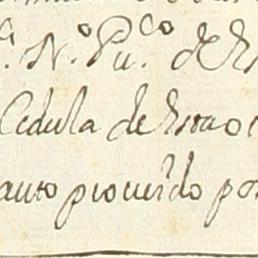 N.º Pu.co de Es
Cedula de Esta o
auto proueido por